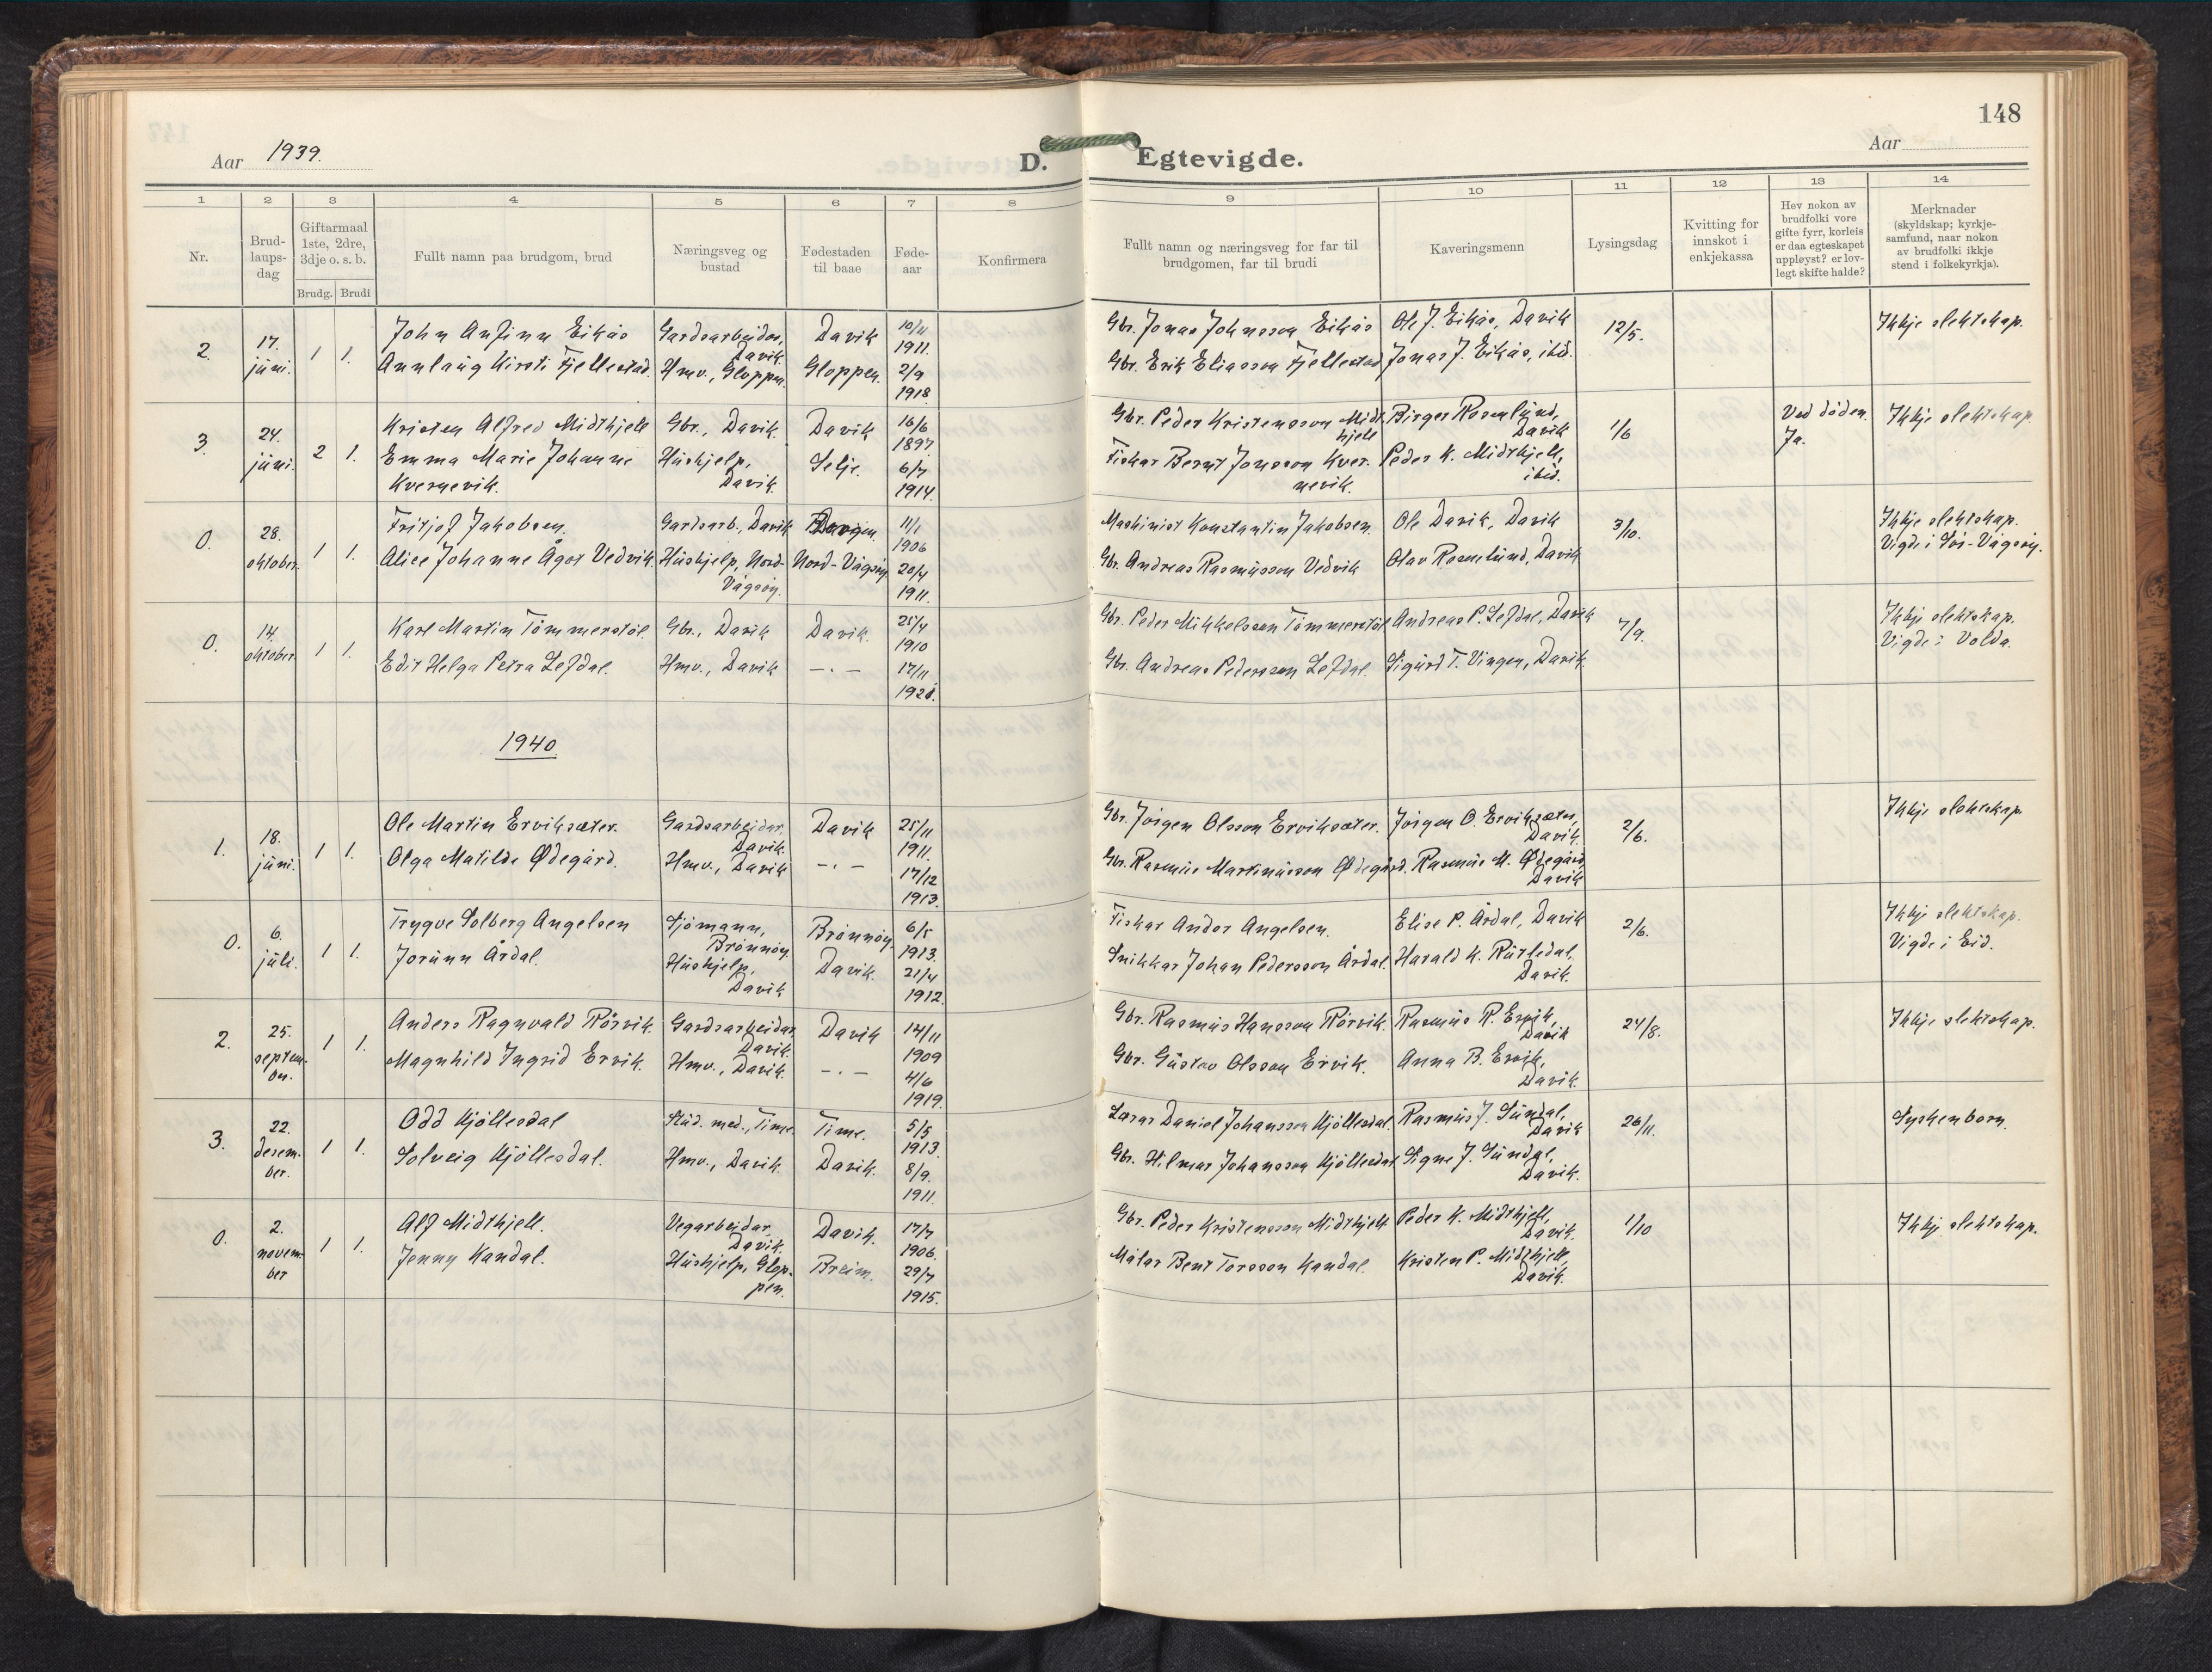 148
Aar 1939.
D. Egtevigde.
Aar
1 2 3 4 5 6 7 8 9 10 11 12 13 14
Nr.
Brud-
laups-
dag
Giftarmaal
1ste, 2dre,
3dje o. s. b.
Brudg. Brudi
Fullt namn paa brudgom, brud
Næringsveg og
bustad
Fødestaden
til baae
Føde-
aar
Konfirmera
Fullt namn og næringsveg for far til
brudgomen, far til brudi
Kaveringsmenn
Lysingsdag
Kvitting for
innskot i
enkjekassa
Hev nokon av
brudfolki vore
gifte fyrr, korleis
er daa egteskapet
uppløyst? er lov-
legt skifte halde?
Merknader
(skyldskap; kyrkje-
samfund, naar nokon
av brudfolki ikkje
stend i folkekyrkja).
2. 17. juni. 1 1.
John Anfinn Eikås Gardsarbeidar, Davik. Davik 10/11 1911.
Annlaug Kirsti Fjellestad. Hmv., Gloppen. Gloppen. 2/9 1918.
Gbr. Jonas Johnsson Eikås Ole J. Eikås, Davik 12/5. Ikkje slektskap.
Gbr. Erik Eliasson Fjellestad Jonas J. Eikås, ibid.
3. 24. juni. 2 1.
Kristen Alfred Midthjell Gbr., Davik. Davik 16/6 1897.
Emma Marie Johanne Kvernevik. Hushjelp, Davik. Selje. 6/7 1914.
Gbr. Peder Kristensson Midthjell Birger Rosenlund, Davik 1/6 Ved døden. Ja. Ikkje slektskap.
Fiskar Bernt Jonsson Kvernevik. Peder K. Midthjell, ibid.
0. 28. oktober. 1 1.
Fritjof Jakobsen. Gardsarb., Davik 11/1 1906
Alice Johanne Ågot Vedvik. Hushjelp, Nord-Vågsøy. Nord-Vågsøy 20/4 1911.
Maskinist Konstantin Jakobsen. Ole Davik, Davik 3/10. Ikkje slektskap. Vigde i Sør-Vågsøy.
Gbr. Andreas Rasmusson Vedvik Olav Rosenlund, Davik
0. 14. oktober. 1 1.
Karl Martin Tømmerstøl Gbr., Davik Davik. 25/4 1910
Edit Helga Petra Lefdal. Hmv., Davik —.— 17/11
Gbr. Peder Mikkelsson Tømmerstøl Andreas P. Lefdal, Davik 7/9. Ikkje slektskap. Vigde i Volda.
Gbr. Andreas Pedersson Lefdal. Sigurd T. Vingen, Davik.
1940
1. 18. juni. 1 1.
Ole Martin Erviksæter. Gardsarbeidar, Davik. Davik 25/11 1911.
Olga Matilde Ødegård. Hmv., Davik —.— 17/12 1913.
Gbr. Jørgen Olsson Erviksæter. Jørgen O. Erviksæter, Davik. 2/6. Ikkje slektskap.
Gbr. Rasmus Martinusson Ødegård. Rasmus M. Ødegård, Davik
0. 6. juli. 1 1.
Trygve Solberg Angelsen Sjømann, Brønnøy. Brønnøy 6/5 1913.
Jorunn Årdal. Hushjelp, Davik Davik. 21/4 1912.
Fiskar Andor Angelsen. Elise P. Årdal, Davik 2/6. Ikkje slektskap. Vigde i Eid.
Snikkar Johan Pedersson Årdal. Harald K. Davik.
2. 25. september. 1 1.
Anders Ragnvald Rørvik. Gardsarbeidar, Davik. Davik 14/11 1909
Magnhild Ingrid Ervik. Hmv., Davik. —.— 4/6 1919.
Gbr. Rasmus Hansson Rørvik. Rasmus R. Ervik, Davik 24/8. Ikkje slektskap.
Gbr. Gustav Olsson Ervik. Anna B. Ervik, Davik.
3. 22. desember. 1 1.
Odd Kjøllesdal Stud. med., Time. Time. 5/5 1913.
Solveig Kjøllesdal. Hmv., Davik. Davik. 8/9. 1911.
Lærar Daniel Johansson Kjøllesdal. Rasmus J. Sundal, Davik 26/11. Syskenborn.
Gbr. Hilmar Johansson Kjøllesdal Signe J. Sundal, Davik.
0. 2. november 1 1.
Alf Midthjell. Vegarbeidar, Davik. Davik. 17/7 1906.
Jenny Kandal. Hushjelp, Gloppen. Breim. 29/7 1915.
Gbr. Peder Kristensson Midthjell Peder K. Midthjell, Davik. 1/10 Ikkje slektskap.
Målar Bent Torsson Kandal. Kristen P. Midthjell, Davik.